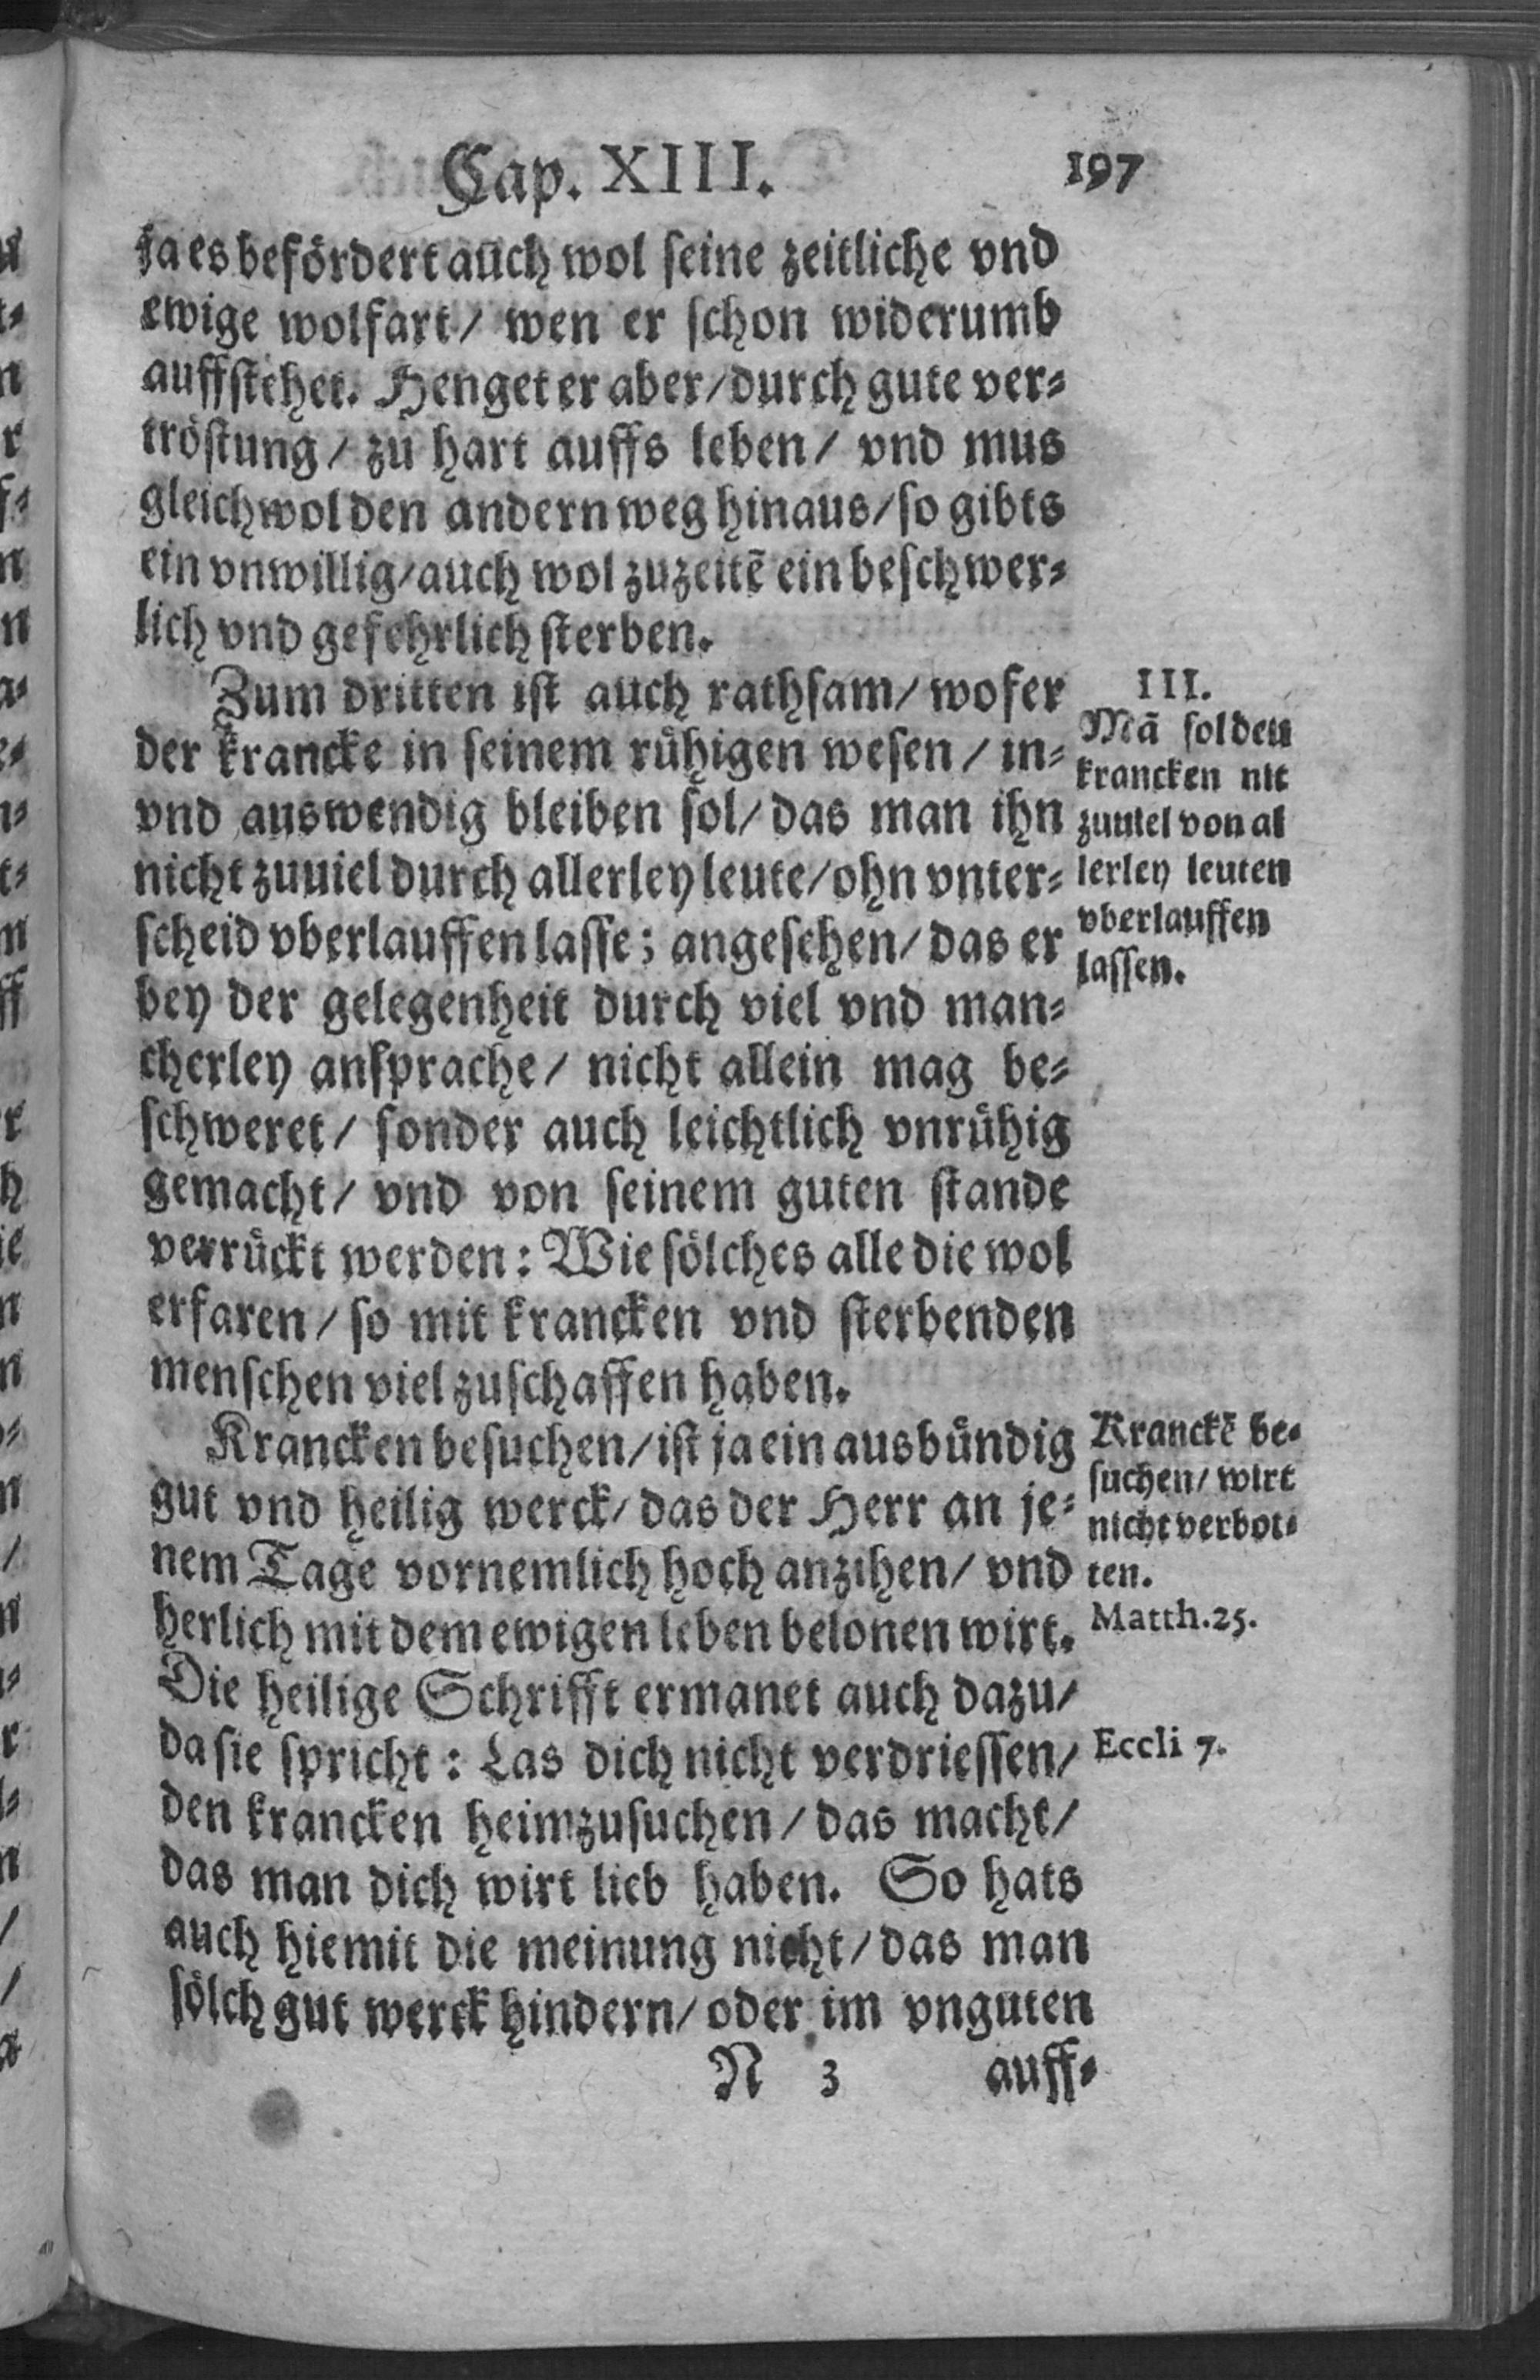 Cap. XIII. 197
ja es befördert auch wol seine zeitliche vnd
ewige wolfart / wen er schon widerumb
auffstehet. Henget er aber / durch gute ver⸗
tröstung / zu hart auffs leben / vnd mus
gleichwol den andern weg hinaus / so gibts
ein vnwillig / auch wol zuzeitẽ ein beschwer⸗
lich vnd gefehrlich sterben.
Zum dritten ist auch rathsam / wofer
der krancke in seinem rühigen wesen / in⸗
vnd auswendig bleiben sol / das man ihn
nicht zuuiel durch allerley leute / ohn vnter⸗
scheid vberlauffen lasse; angesehen / das er
bey der gelegenheit durch viel vnd man⸗
cherley ansprache / nicht allein mag be⸗
schweret / sonder auch leichtlich vnrühig
gemacht / vnd von seinem guten stande
verrückt werden: Wie sölches alle die wol
erfaren / so mit krancken vnd sterbenden
menschen viel zuschaffen haben.
Krancken besuchen / ist ja ein ausbündig
gut vnd heilig werck / das der Herr an je⸗
nem Tage vornemlich hoch anzihen / vnd
herlich mit dem ewigen leben belonen wirt.
Die heilige Schrifft ermanet auch dazu /
da sie spricht: Las dich nicht verdriessen /
den krancken heimzusuchen / das macht /
das man dich wirt lieb haben. So hats
auch hiemit die meinung nicht / das man
sölch gut werck hindern / oder im vnguten
N 3 auff⸗
III.
Mã sol den
krancken nit
zuuiel von al
lerley leuten
vberlauffen
lassen.
Kranckẽ be⸗
suchen / wirt
nicht verbot⸗
ten.
Matth. 25.
Eccli 7.